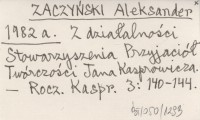 ZACZYŃSKI Aleksander
1982 a. Z działalności
Stowarzyszenia Przyjaciół
Twórczości Jana Kasprowicza.
— Rocz. Kaspr. 3: 140-144.